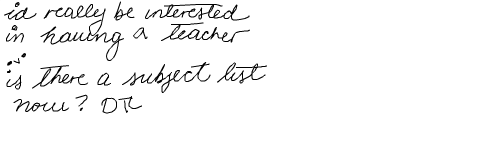 id really be interested
in having a teacher
is there a subject list
now? DR